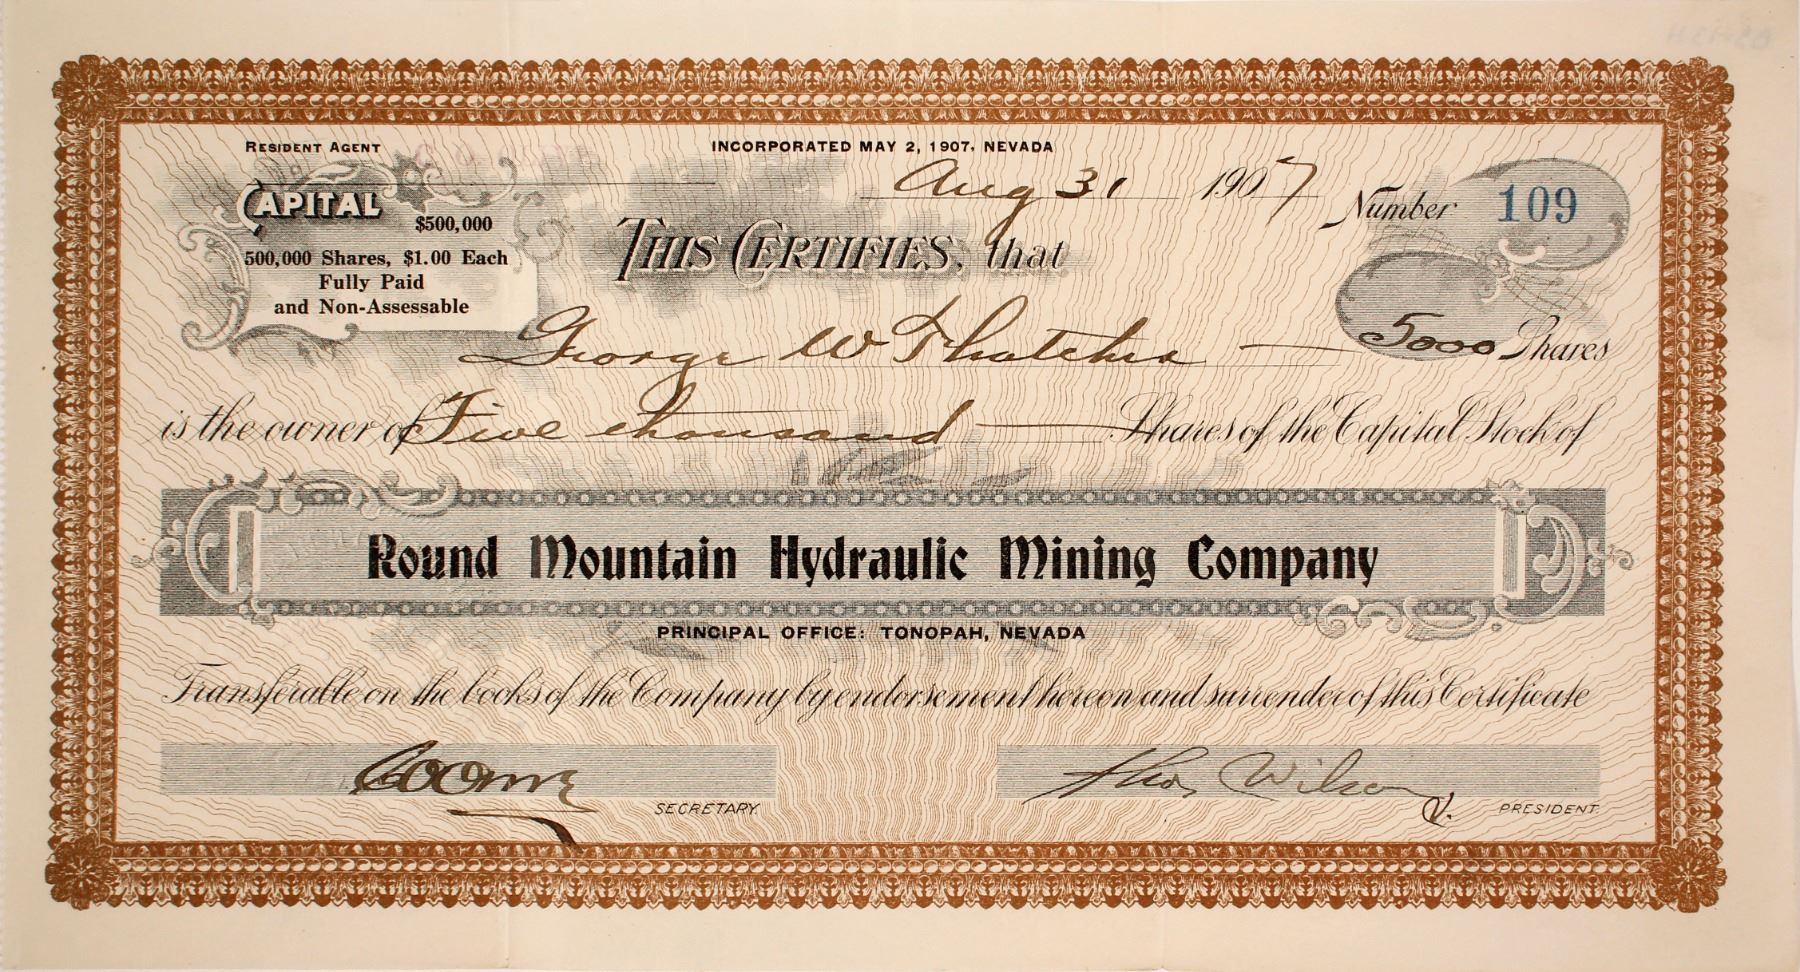 RESIDENT AGENT
INCORPORATED MAY 2, 1907, NEVADA
Aug 31 1907
Number 109
CAPITAL
$500,000
500,000 Shares, $1.00 Each
Fully Paid
and Non-Assessable
THIS CERTIFIES, that
George W Thatcher
5000 Shares
is the owner of Five thousand Shares of the Capital Stock of
Round Mountain Hydraulic Mining Company
PRINCIPAL OFFICE: TONOPAH, NEVADA
Transferable on the books of the Company by endorsement hereon and surrender of this Certificate
SECRETARY.
Thos Wilson
V. PRESIDENT.